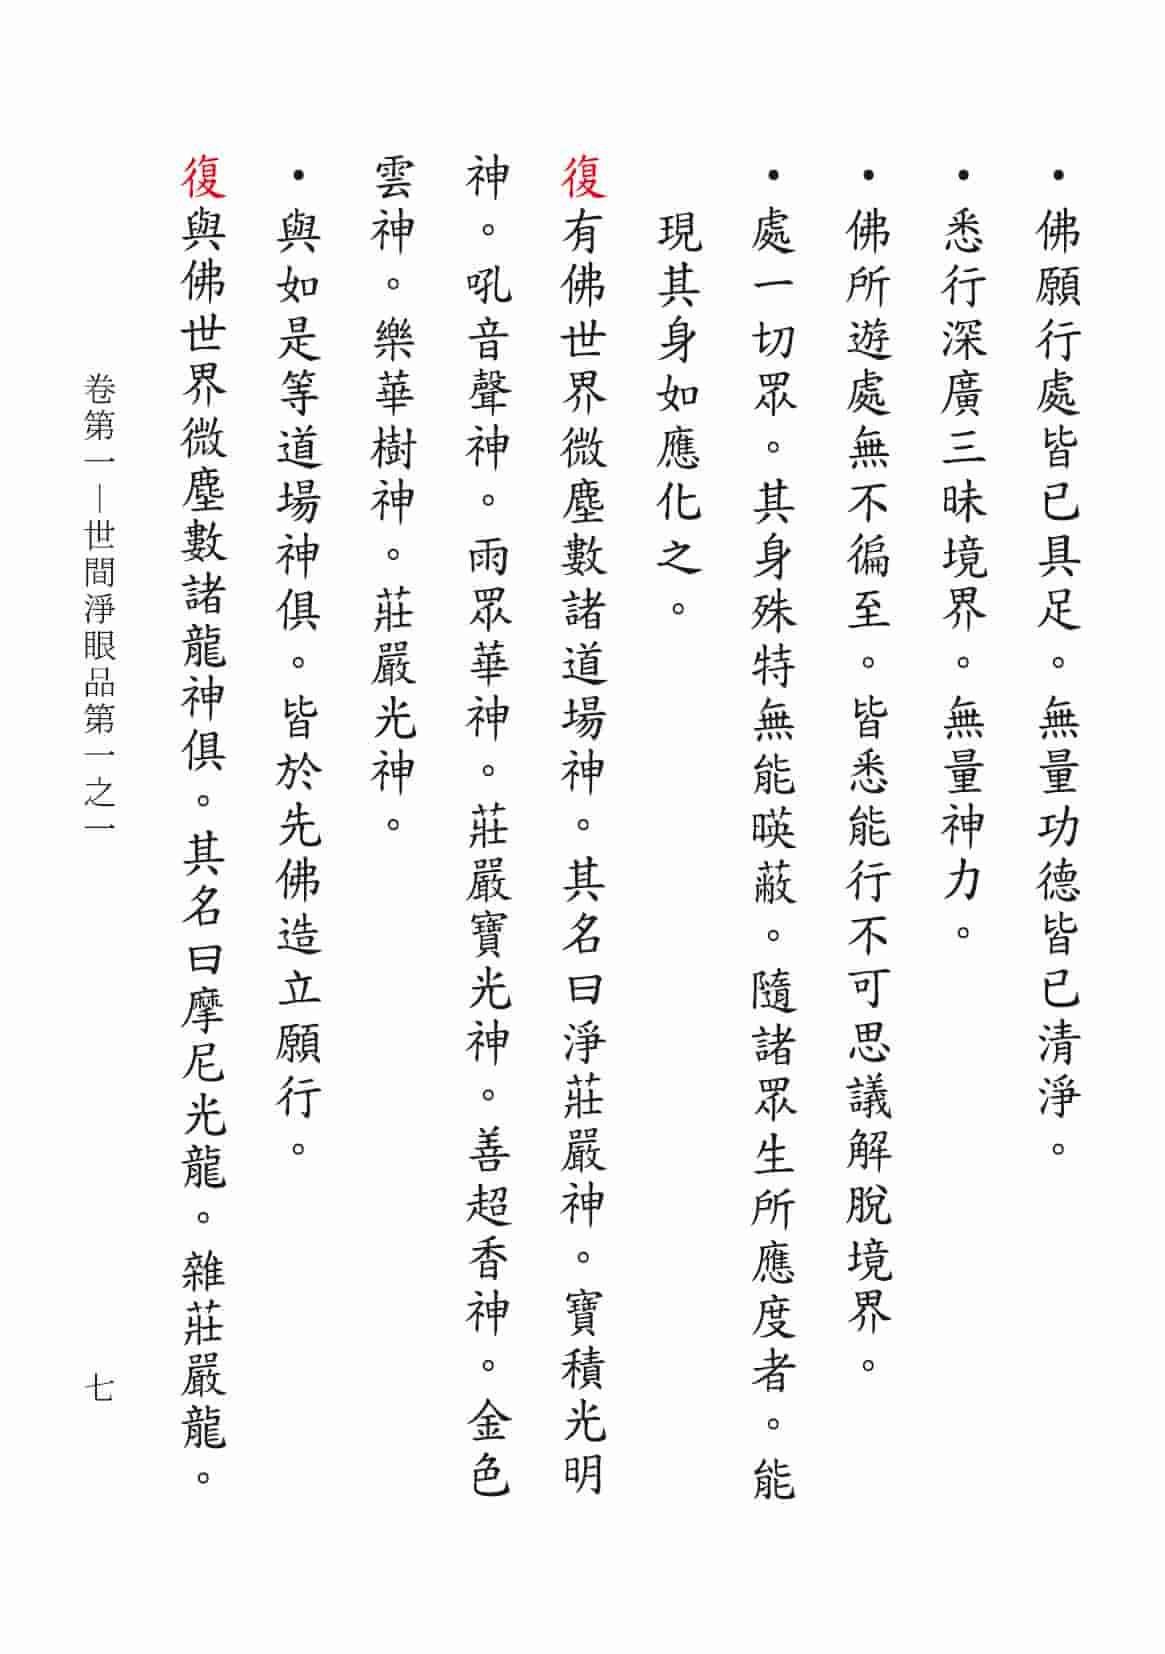 ・佛願行處皆已具足。無量功德皆已清淨。
・悉行深廣三昧境界。無量神力。
・佛所遊處無不徧至。皆悉能行不可思議解脫境界。
・處一切眾。其身殊特無能暎蔽。隨諸眾生所應度者。能
現其身如應化之。
復有佛世界微塵數諸道場神。其名曰淨莊嚴神。寶積光明
神。吼音聲神。雨眾華神。莊嚴寶光神。善超香神。金色
雲神。樂華樹神。莊嚴光神。
・與如是等道場神俱。皆於先佛造立願行。
復與佛世界微塵數諸龍神俱。其名曰摩尼光龍。雜莊嚴龍。
卷第一—世間淨眼品第一之一
七